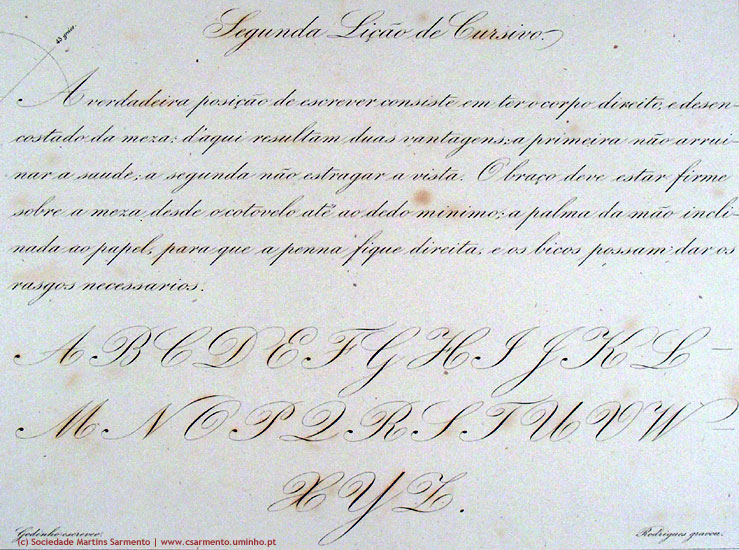 45 gráos.
Segunda Lição de Cursivo
A verdadeira posição de escrever consiste em ter o corpo direito, e desen-
costado da meza; d'aqui resultam duas vantagens; a primeira não arrui-
nar a saude; a segunda não estragar a vista. O braço deve estar firme
sobre a meza desde o cotovelo até ao dedo minimo; a palma da mão incli-
nada ao papel, para que a penna fique direita, e os bicos possam dar os
rasgos necessarios.
A B C D E F G H I J K L –
M N O P Q R S T U V W –
X Y Z.
Godinho escreveo.
Rodrigues gravou.
(c) Sociedade Martins Sarmento | www.csarmento.uminho.pt